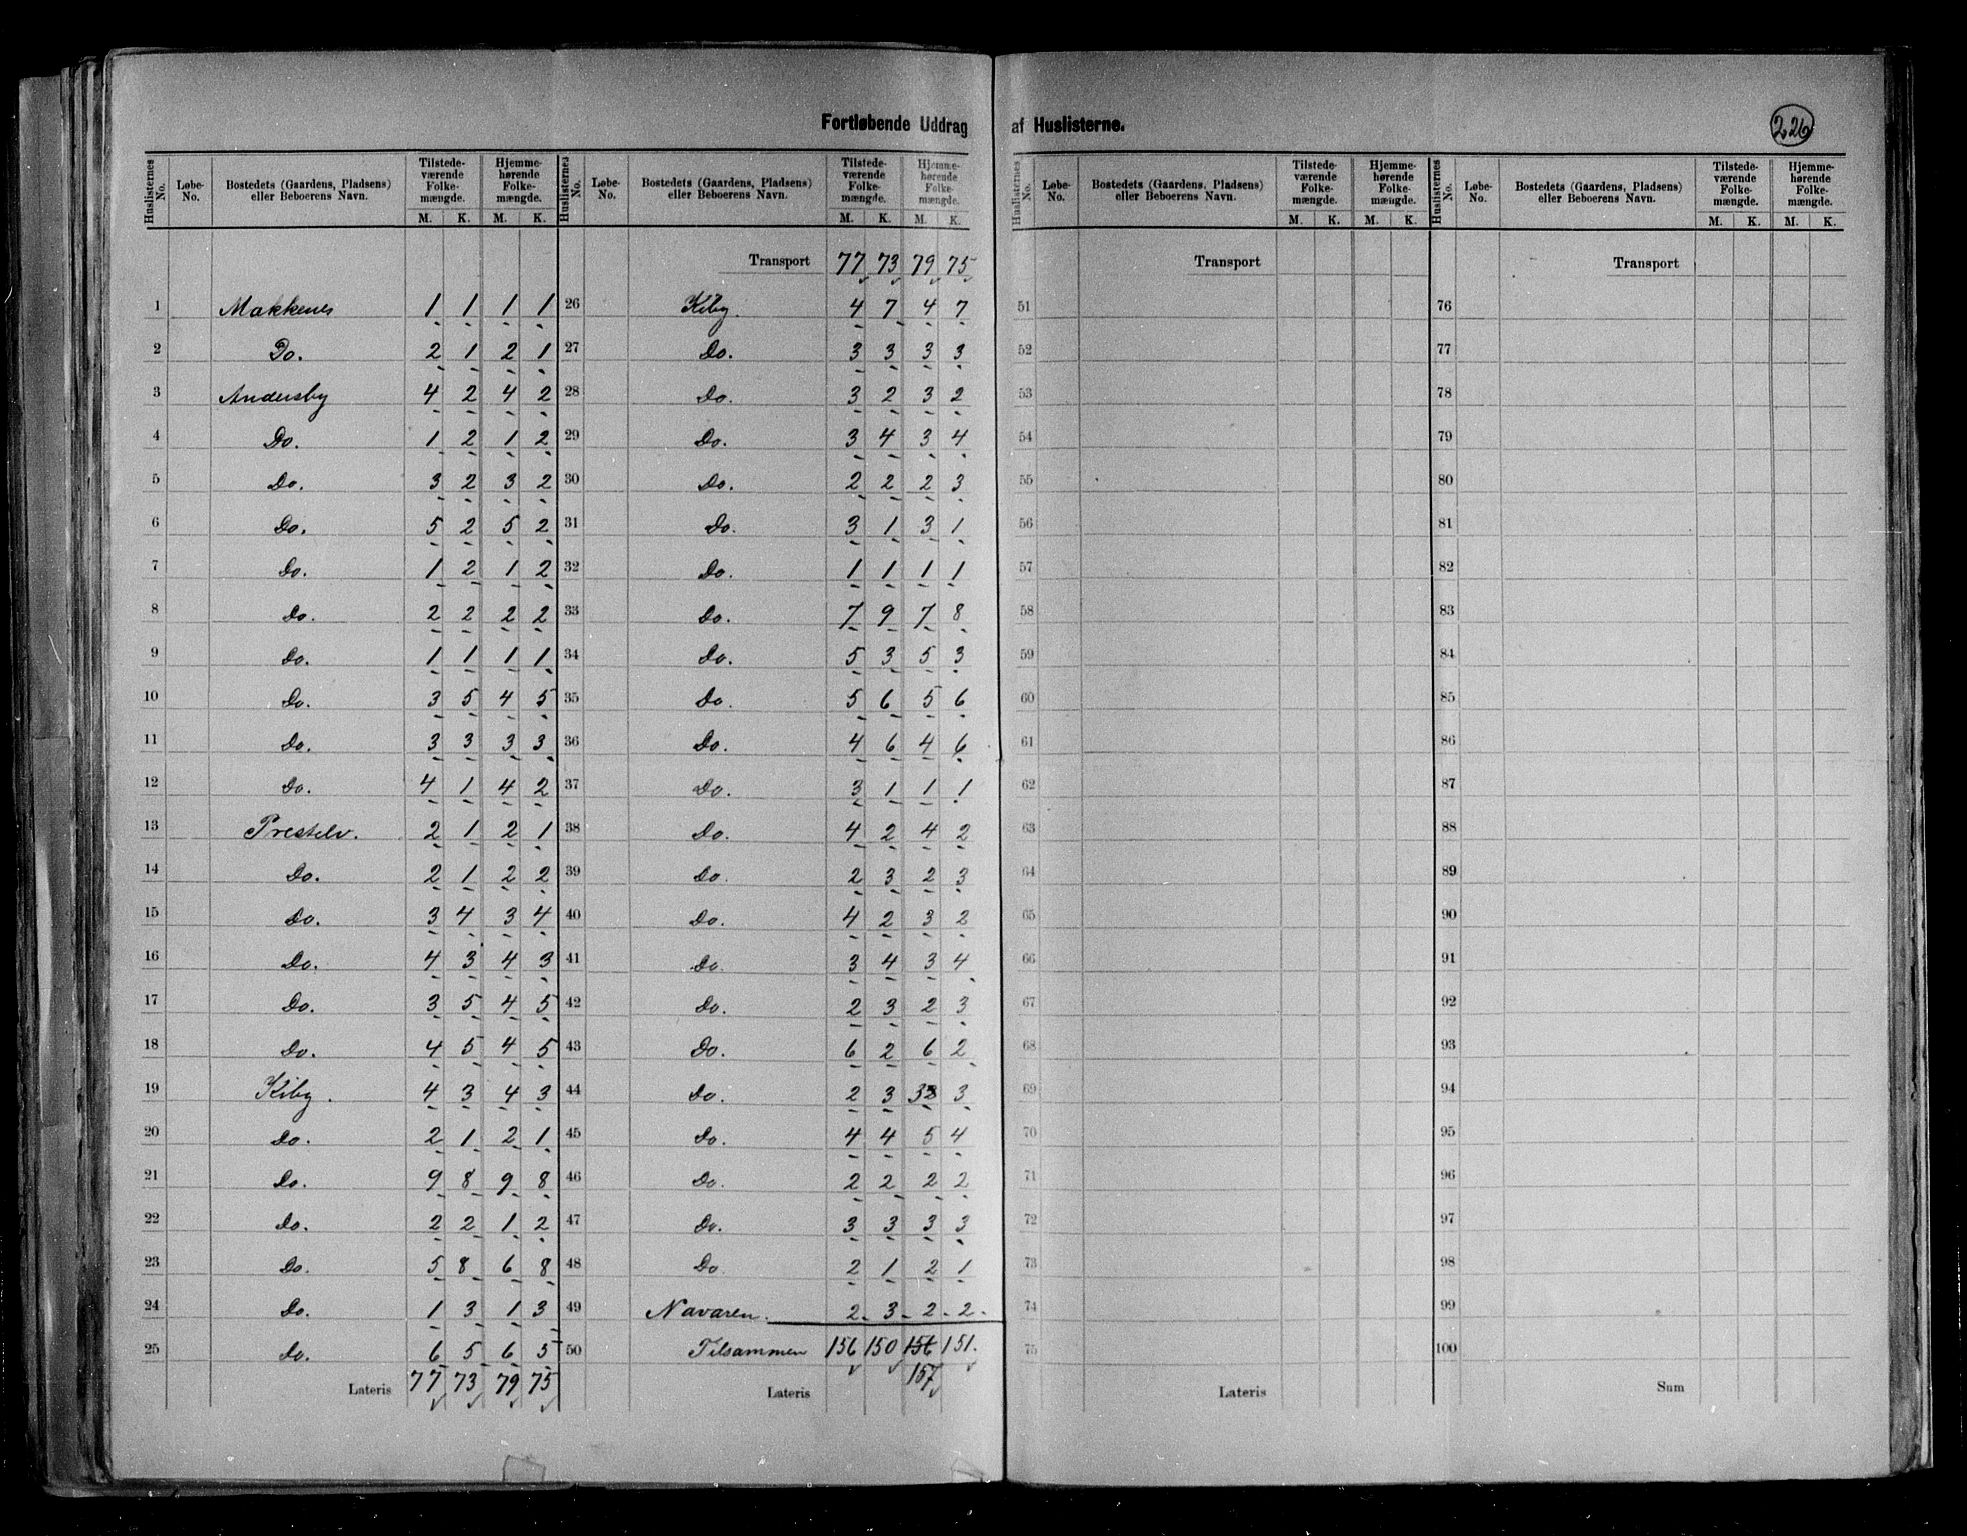 Fortløbende Uddrag af Huslisterne.
226
Huslisternes No. | Løbe-No. | Bostedets (Gaardens, Pladsens) eller Beboerens Navn. | Tilstedeværende Folkemængde. M. K. | Hjemmehørende Folkemængde. M. K.
1 Makkenes 1 1 1 1
2 Do. 2 1 2 1
3 Andersby 4 2 4 2
4 Do. 1 2 1 2
5 Do. 3 2 3 2
6 Do. 5 2 5 2
7 Do. 1 2 1 2
8 Do. 2 2 2 2
9 Do. 1 1 1 1
10 Do. 3 5 4 5
11 Do. 3 3 3 3
12 Do. 4 1 4 2
13 Prestelv. 2 1 2 1
14 Do. 2 1 2 2
15 Do. 3 4 3 4
16 Do. 4 3 4 3
17 Do. 3 5 4 5
18 Do. 4 5 4 5
19 Kiby. 4 3 4 3
20 Do. 2 1 2 1
21 Do. 9 8 9 8
22 Do. 2 2 1 2
23 Do. 5 8 6 8
24 Do. 1 3 1 3
25 Do. 6 5 6 5
Lateris 77 73 79 75
Huslisternes No. | Løbe-No. | Bostedets (Gaardens, Pladsens) eller Beboerens Navn. | Tilstedeværende Folkemængde. M. K. | Hjemmehørende Folkemængde. M. K.
Transport 77 73 79 75
26 Kiby. 4 7 4 7
27 Do. 3 3 3 3
28 Do. 3 2 3 2
29 Do. 3 4 3 4
30 Do. 2 2 2 3
31 Do. 3 1 3 1
32 Do. 1 1 1 1
33 Do. 7 9 7 8
34 Do. 5 3 5 3
35 Do. 5 6 5 6
36 Do. 4 6 4 6
37 Do. 3 1 1 1
38 Do. 4 2 4 2
39 Do. 2 3 2 3
40 Do. 4 2 3 2
41 Do. 3 4 3 4
42 Do. 2 3 2 3
43 Do. 6 2 6 2
44 Do. 2 3 3 3
45 Do. 4 4 5 4
46 Do. 2 2 2 2
47 Do. 3 3 3 3
48 Do. 2 1 2 1
49 Navaren. 2 3 2 2
50 Tilsammen 156 150 156 151.
Lateris 157
Huslisternes No. | Løbe-No. | Bostedets (Gaardens, Pladsens) eller Beboerens Navn. | Tilstedeværende Folkemængde. M. K. | Hjemmehørende Folkemængde. M. K.
Transport
51
52
53
54
55
56
57
58
59
60
61
62
63
64
65
66
67
68
69
70
71
72
73
74
75
Lateris
Huslisternes No. | Løbe-No. | Bostedets (Gaardens, Pladsens) eller Beboerens Navn. | Tilstedeværende Folkemængde. M. K. | Hjemmehørende Folkemængde. M. K.
Transport
76
77
78
79
80
81
82
83
84
85
86
87
88
89
90
91
92
93
94
95
96
97
98
99
100
Sum